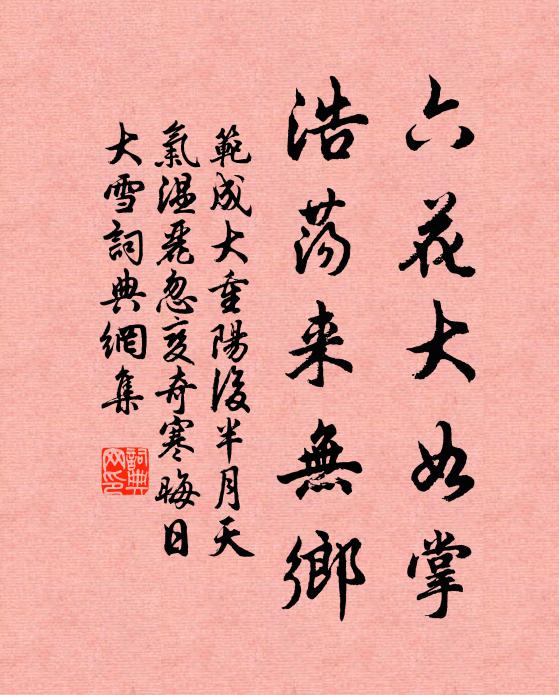 六花大如掌
浩荡来無鄉
範成大重陽後半月天
氣温麗忽变奇寒晦日
大雪詞典網集
詞典網印